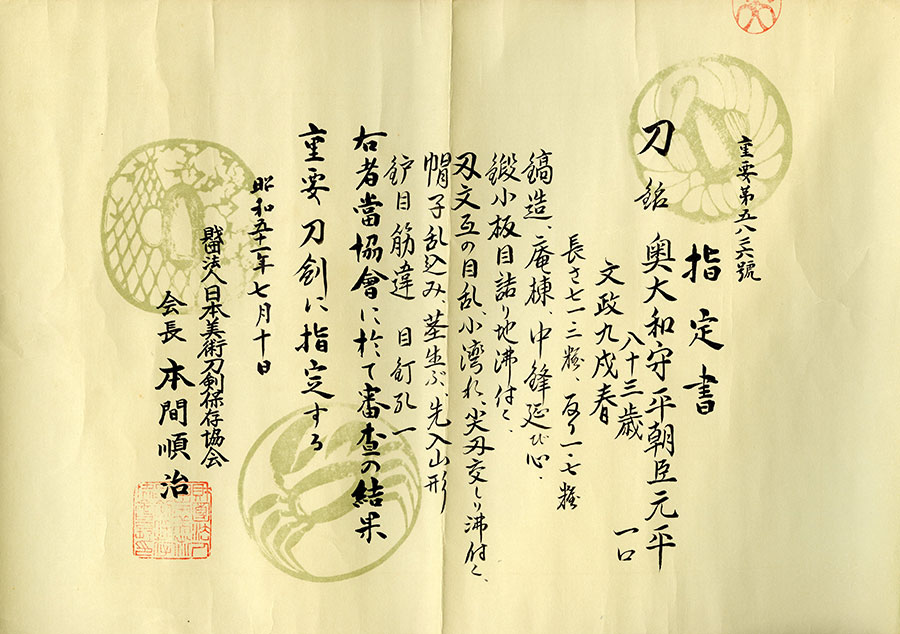 重要第五八三六號
指定書
刀 銘 奥大和守平朝臣元平
八十三歳 一口
文政九戌春
長さ七一・三糎、反り一・七糎
鎬造、庵棟、中鋒延び心、
鍛小板目詰り地沸付く、
刃文互の目乱、小湾れ、尖刃交じり沸付く、
帽子乱込み、茎生ぶ、先入山形
鈩目筋違 目釘孔一
右者當協會に於て審査の結果
重要刀剣に指定する
昭和五十一年七月十日
財団法人日本美術刀剣保存協会
会長 本間順治